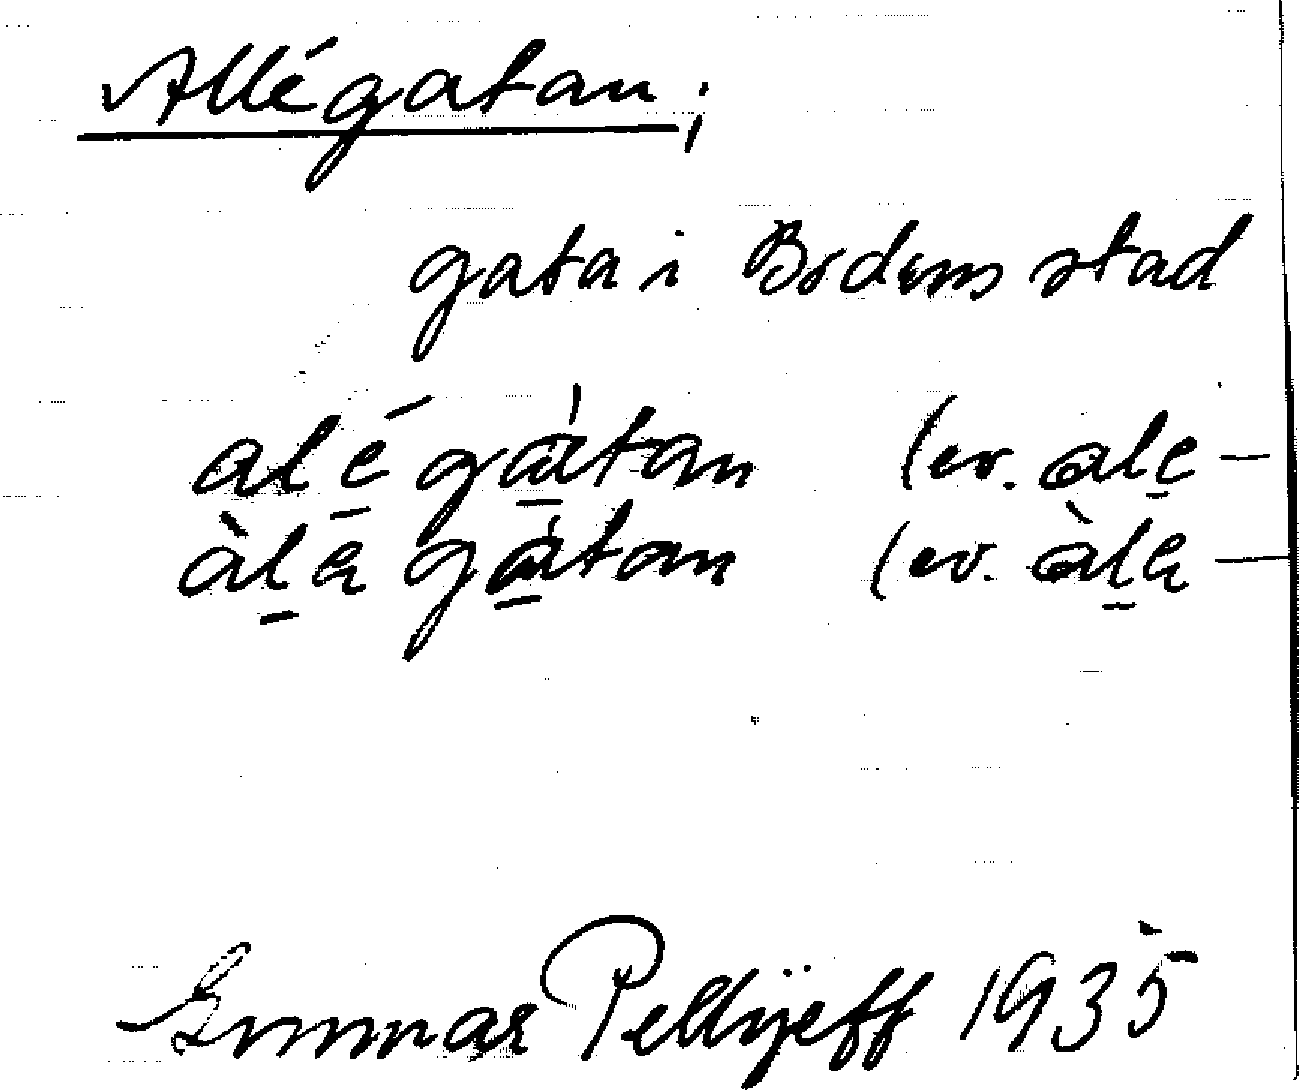 Allégatan;
gata i Bodens stad
alégàtan (ev. ale-
àlegàtan (ev. àle-
Gunnar Pellijeff 1935